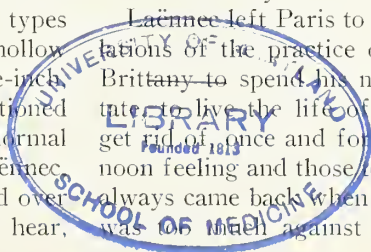 types
hollow
e-inch
tioned
ormal
ënnec
d over
hear,
Laënnec left Paris to
lations of the practice
Brittany to spend his n
tate, to live the life of
get rid of once and for
noon feeling and those t
always came back when
was too much against
UNIVERSITY OF
LIBRARY
Founded 1813
SCHOOL OF MEDICINE